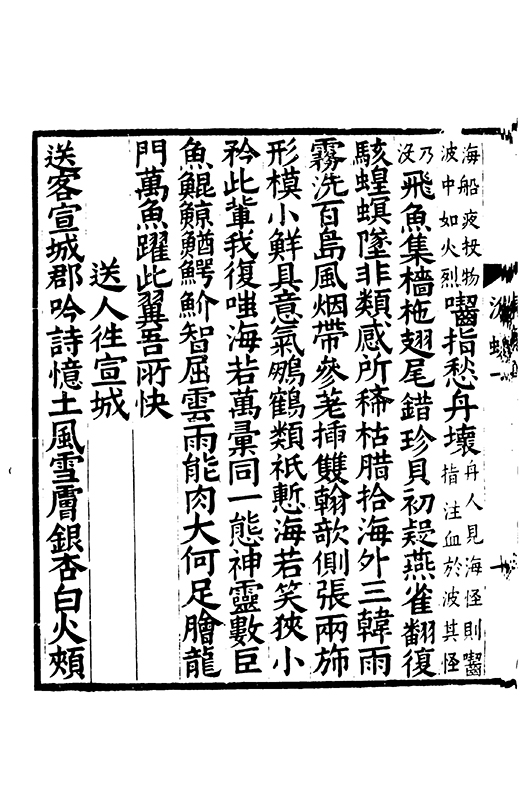 海船物
波中如火烈
囓指愁舟壞
舟人見海怪則囓
指注血於波其怪
乃
没
飛魚集檣柂翅尾錯珍貝初疑燕雀翻復
駭蝗螟墜非類感所稀枯腊拾海外三韓雨
霧洗百島風烟帶參芼揷雙翰欹側張兩斾
形模小鮮具意氣鶴類祇慙海若笑狹小
矜此軰我復嗤海若萬彙同一態神靈數巨
魚鯤鯨鰌鰐魪智屈雲雨能肉大何足膾龍
門萬魚躍此翼吾所快
送人徃宣城
送客宣城郡吟詩憶土風雪膚銀杏白火頰